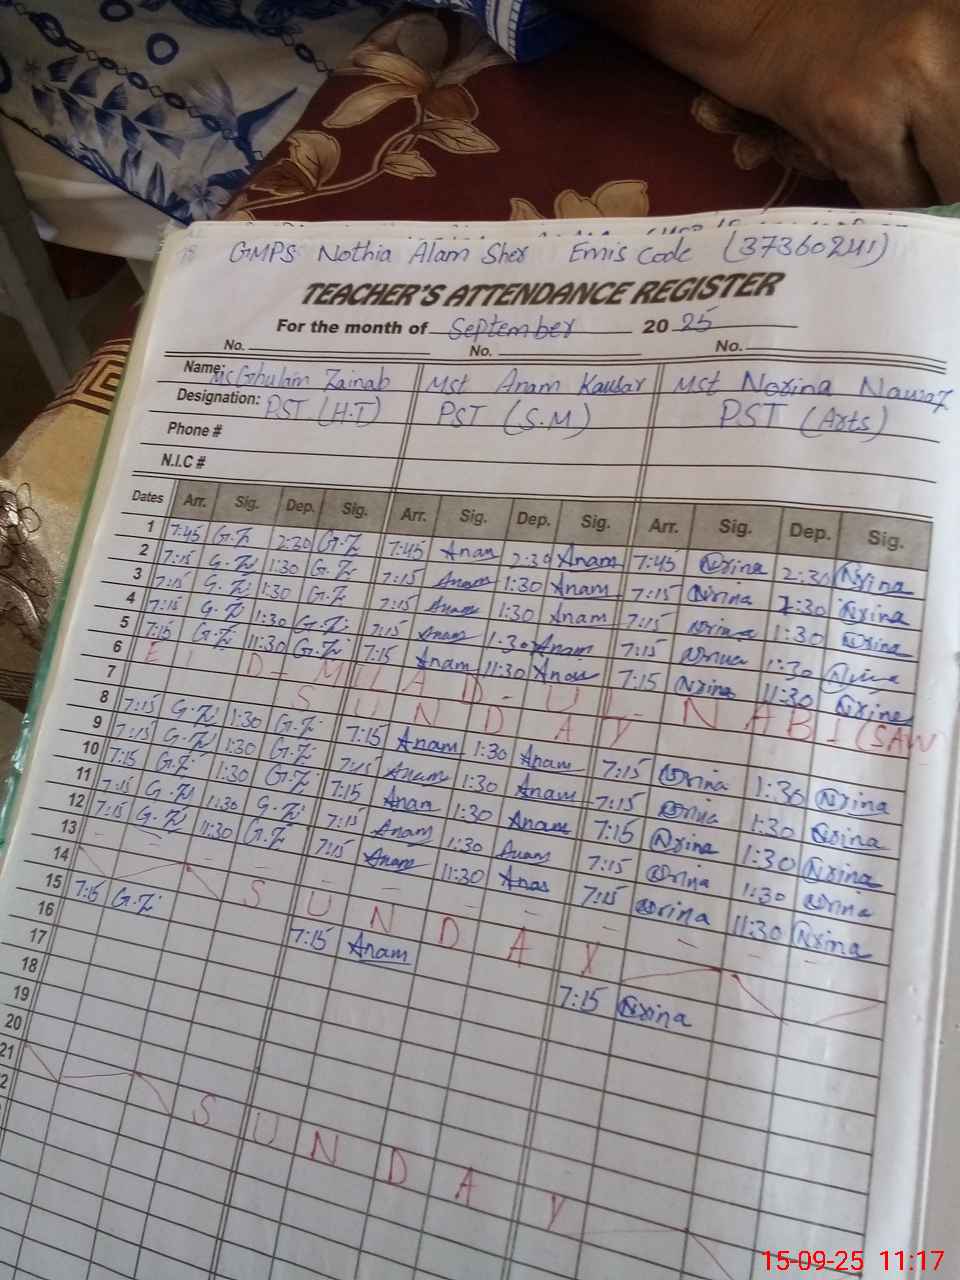 GMPS Nothia Alam Sher Emis Code (37360241)
TEACHER'S ATTENDANCE REGISTER
For the month of September 2025
No. No. No.
Name: Ms Ghulam Zainab Mst Anam Kausar Mst Norina Nawaz
Designation: PST (H.T) PST (S.M) PST (Arts)
Phone #
N.I.C #
Dates Arr. Sig. Dep. Sig. Arr. Sig. Dep. Sig. Arr. Sig. Dep. Sig.
1 7:45 G.Z 2:30 G.Z 7:45 Anam 2:30 Anam 7:45 Nrina 2:30 Nrina
2 7:15 G.Z 1:30 G.Z 7:15 Anam 1:30 Anam 7:15 Nrina 1:30 Nrina
3 7:15 G.Z 1:30 G.Z 7:15 Anam 1:30 Anam 7:15 Nrina 1:30 Nrina
4 7:15 G.Z 1:30 G.Z 7:15 Anam 1:30 Anam 7:15 Nrina 1:30 Nrina
5 7:15 G.Z 11:30 G.Z 7:15 Anam 11:30 Anam 7:15 Nrina 11:30 Nrina
6 EID-MILAD-UL-NABI (SAW
7 SUNDAY
8 7:15 G.Z 1:30 G.Z 7:15 Anam 1:30 Anam 7:15 Nrina 1:30 Nrina
9 7:15 G.Z 1:30 G.Z 7:15 Anam 1:30 Anam 7:15 Nrina 1:30 Nrina
10 7:15 G.Z 1:30 G.Z 7:15 Anam 1:30 Anam 7:15 Nrina 1:30 Nrina
11 7:15 G.Z 1:30 G.Z 7:15 Anam 1:30 Anam 7:15 Nrina 1:30 Nrina
12 7:15 G.Z 11:30 G.Z 7:15 Anam 11:30 Anam 7:15 Nrina 11:30 Nrina
13 - - - - - - - - - -
14 SUNDAY
15 7:15 G.Z 7:15 Anam 7:15 Nrina
16
17
18
19
20
21 SUNDAY
15-09-25 11:17